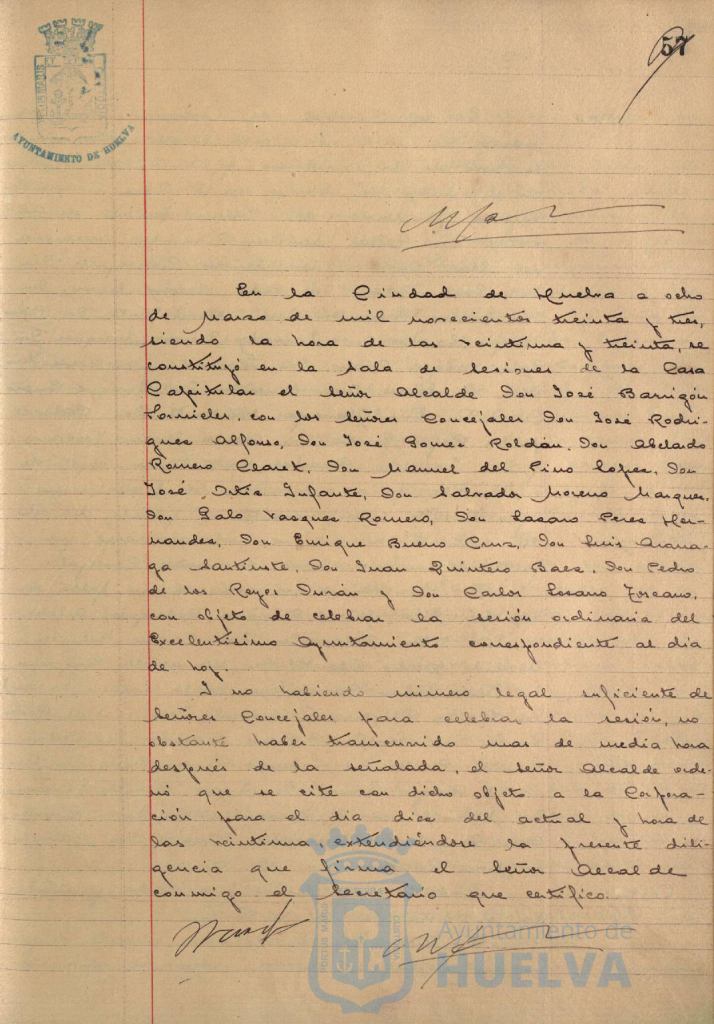 57
PORTUS MARIS
AYUNTAMIENTO DE HUELVA
En la Ciudad de Huelva a ocho
de Marzo de mil novecientos treinta y tres,
siendo la hora de las veintiuna y treinta, se
constituyó en la Sala de Sesiones de la Casa
Capitular el Señor Alcalde Don José Barrigón
Fornieles, con los Señores Concejales Don José Rodri-
guez Alfonso, Don José Gomez Roldán, Don Abelardo
Romero Claret, Don Manuel del Pino Lopez, Don
José Ortiz Infante, Don Salvador Moreno Marquez,
Don Galo Vazquez Romero, Don Lazaro Perez Her-
nandez, Don Enrique Bueno Cruz, Don Luis
Don Juan Quintero Baez, Don Pedro
de los Reyes Durán y Don Carlos Lozano Toscano,
con objeto de celebrar la sesión ordinaria del
Excelentísimo Ayuntamiento correspondiente al dia
de hoy.
Y no habiendo número legal suficiente de
Señores Concejales para celebrar la sesión, no
obstante haber transcurrido mas de media hora
después de la señalada, el Señor Alcalde orde-
nó que se cite con dicho objeto a la Corpora-
ción para el dia diez del actual y hora de
las veintiuna, extendiéndose la presente dili-
gencia que firma el Señor Alcalde
conmigo el Secretario que certifico.
PORTUS MARIS
Ayuntamiento de
HUELVA